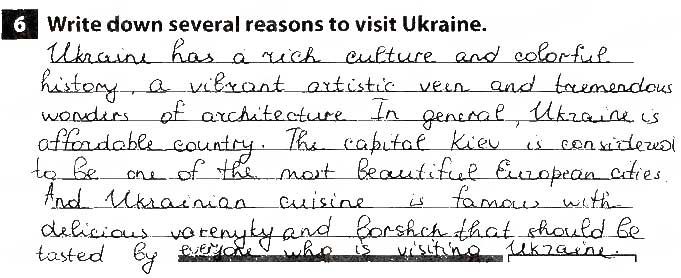 6 Write down several reasons to visit Ukraine.
Ukraine has a rich culture and colorful
history, a vibrant artistic vein and tremendous
wonders of architecture In general, Ukraine is
affordable country. The capital Kiev is considered
to be one of the most beautiful European cities.
And Ukrainian cuisine is famous with
delicious varenyky and borshch that should be
tasted by everyone who is visiting Ukraine.